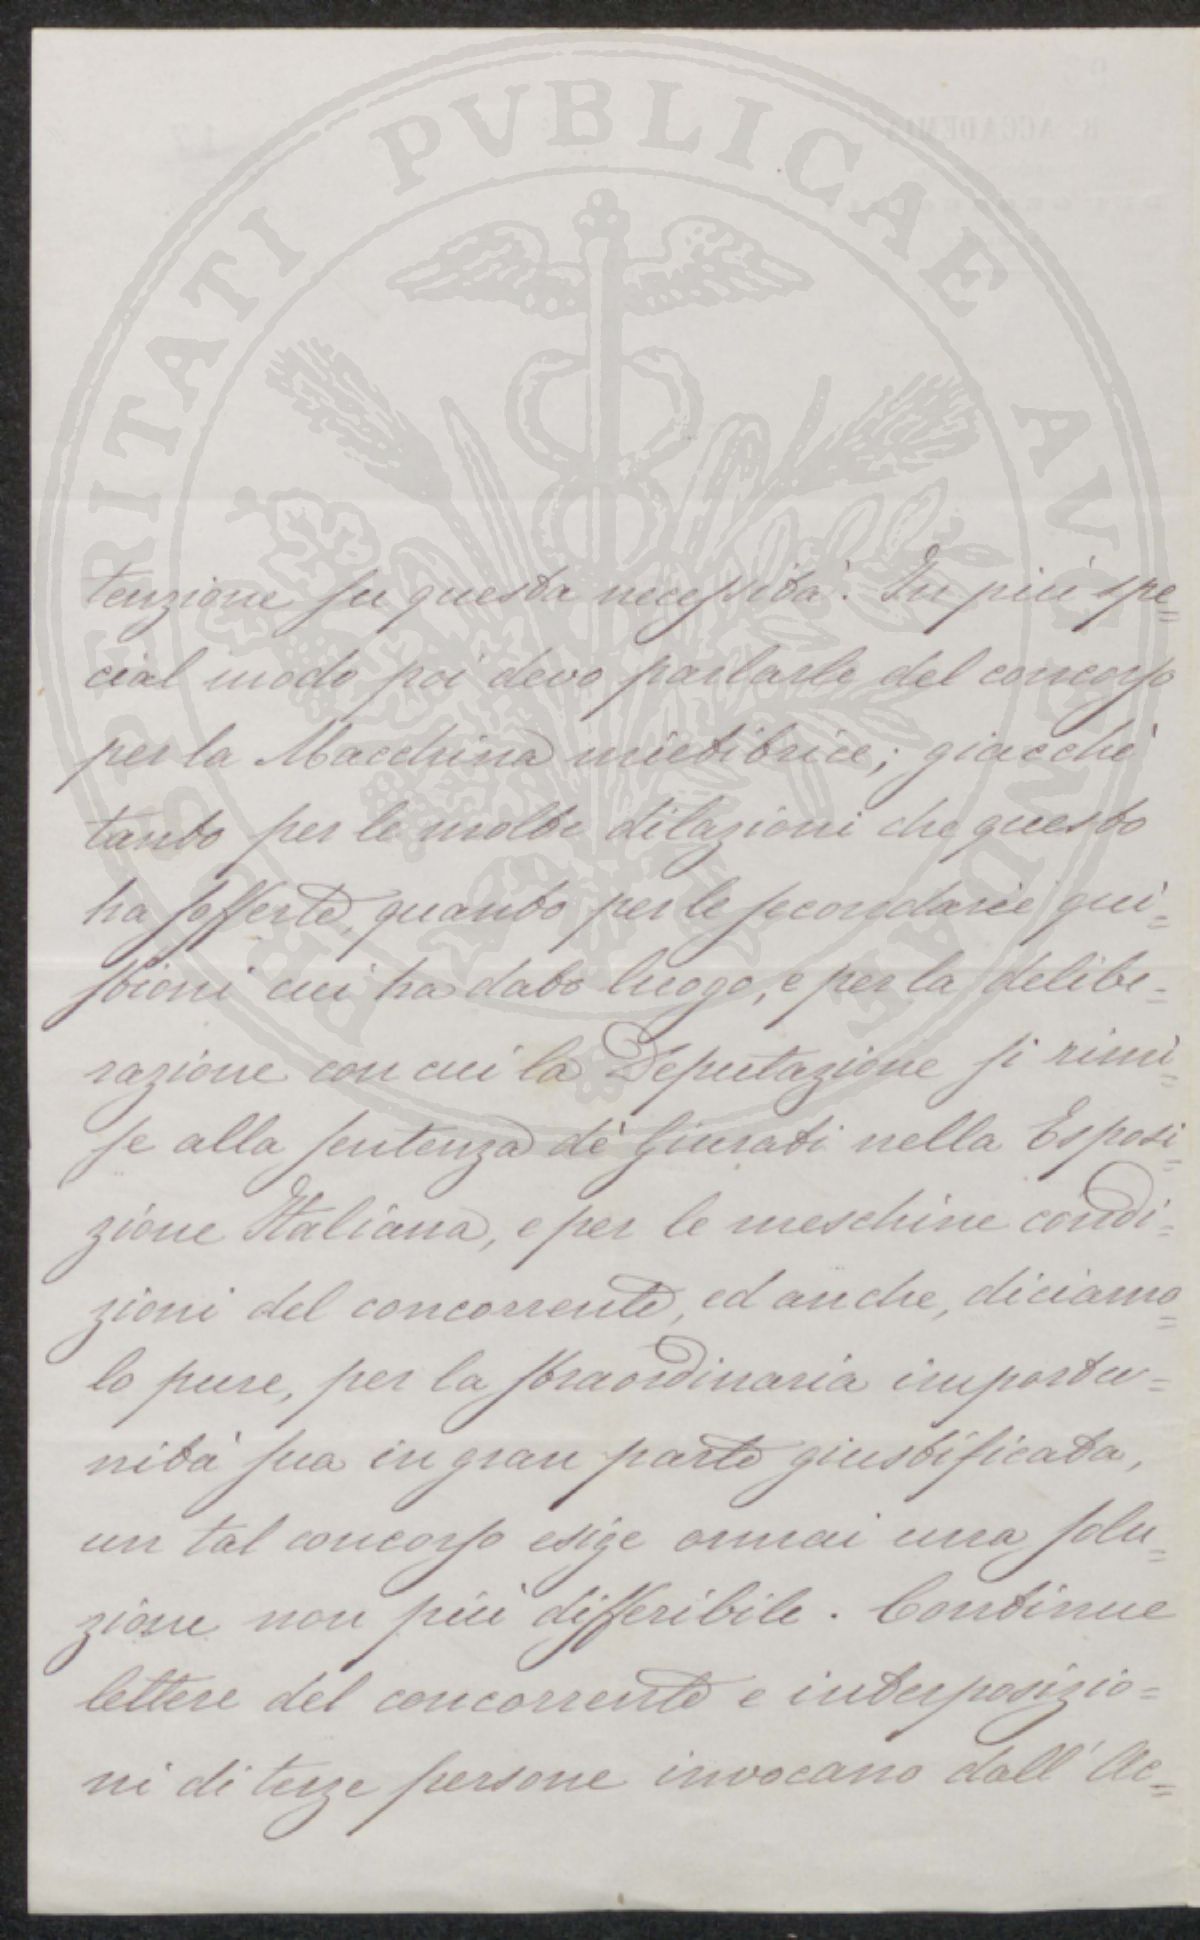 PROSPERITATI PVBLICAE AVGENDAE
tenzione su questa necessità. In più spe=
cial modo poi devo parlarle del concorso
per la Macchina mietitrice; giacchè
tanto per le molte dilazioni che questo
ha sofferte, quanto per le secondarie qui=
stioni cui ha dato luogo, e per la delibe=
razione con cui la Deputazione si rimi=
se alla sentenza de' Giurati nella Esposi=
zione Italiana, e per le meschine condi=
zioni del concorrente, ed anche, diciamo=
lo pure, per la straordinaria importu=
nità sua in gran parte giustificata,
un tal concorso esige ormai una solu=
zione non più differibile. Continue
lettere del concorrente e interposizio=
ni di terze persone invocano dall' Ac=